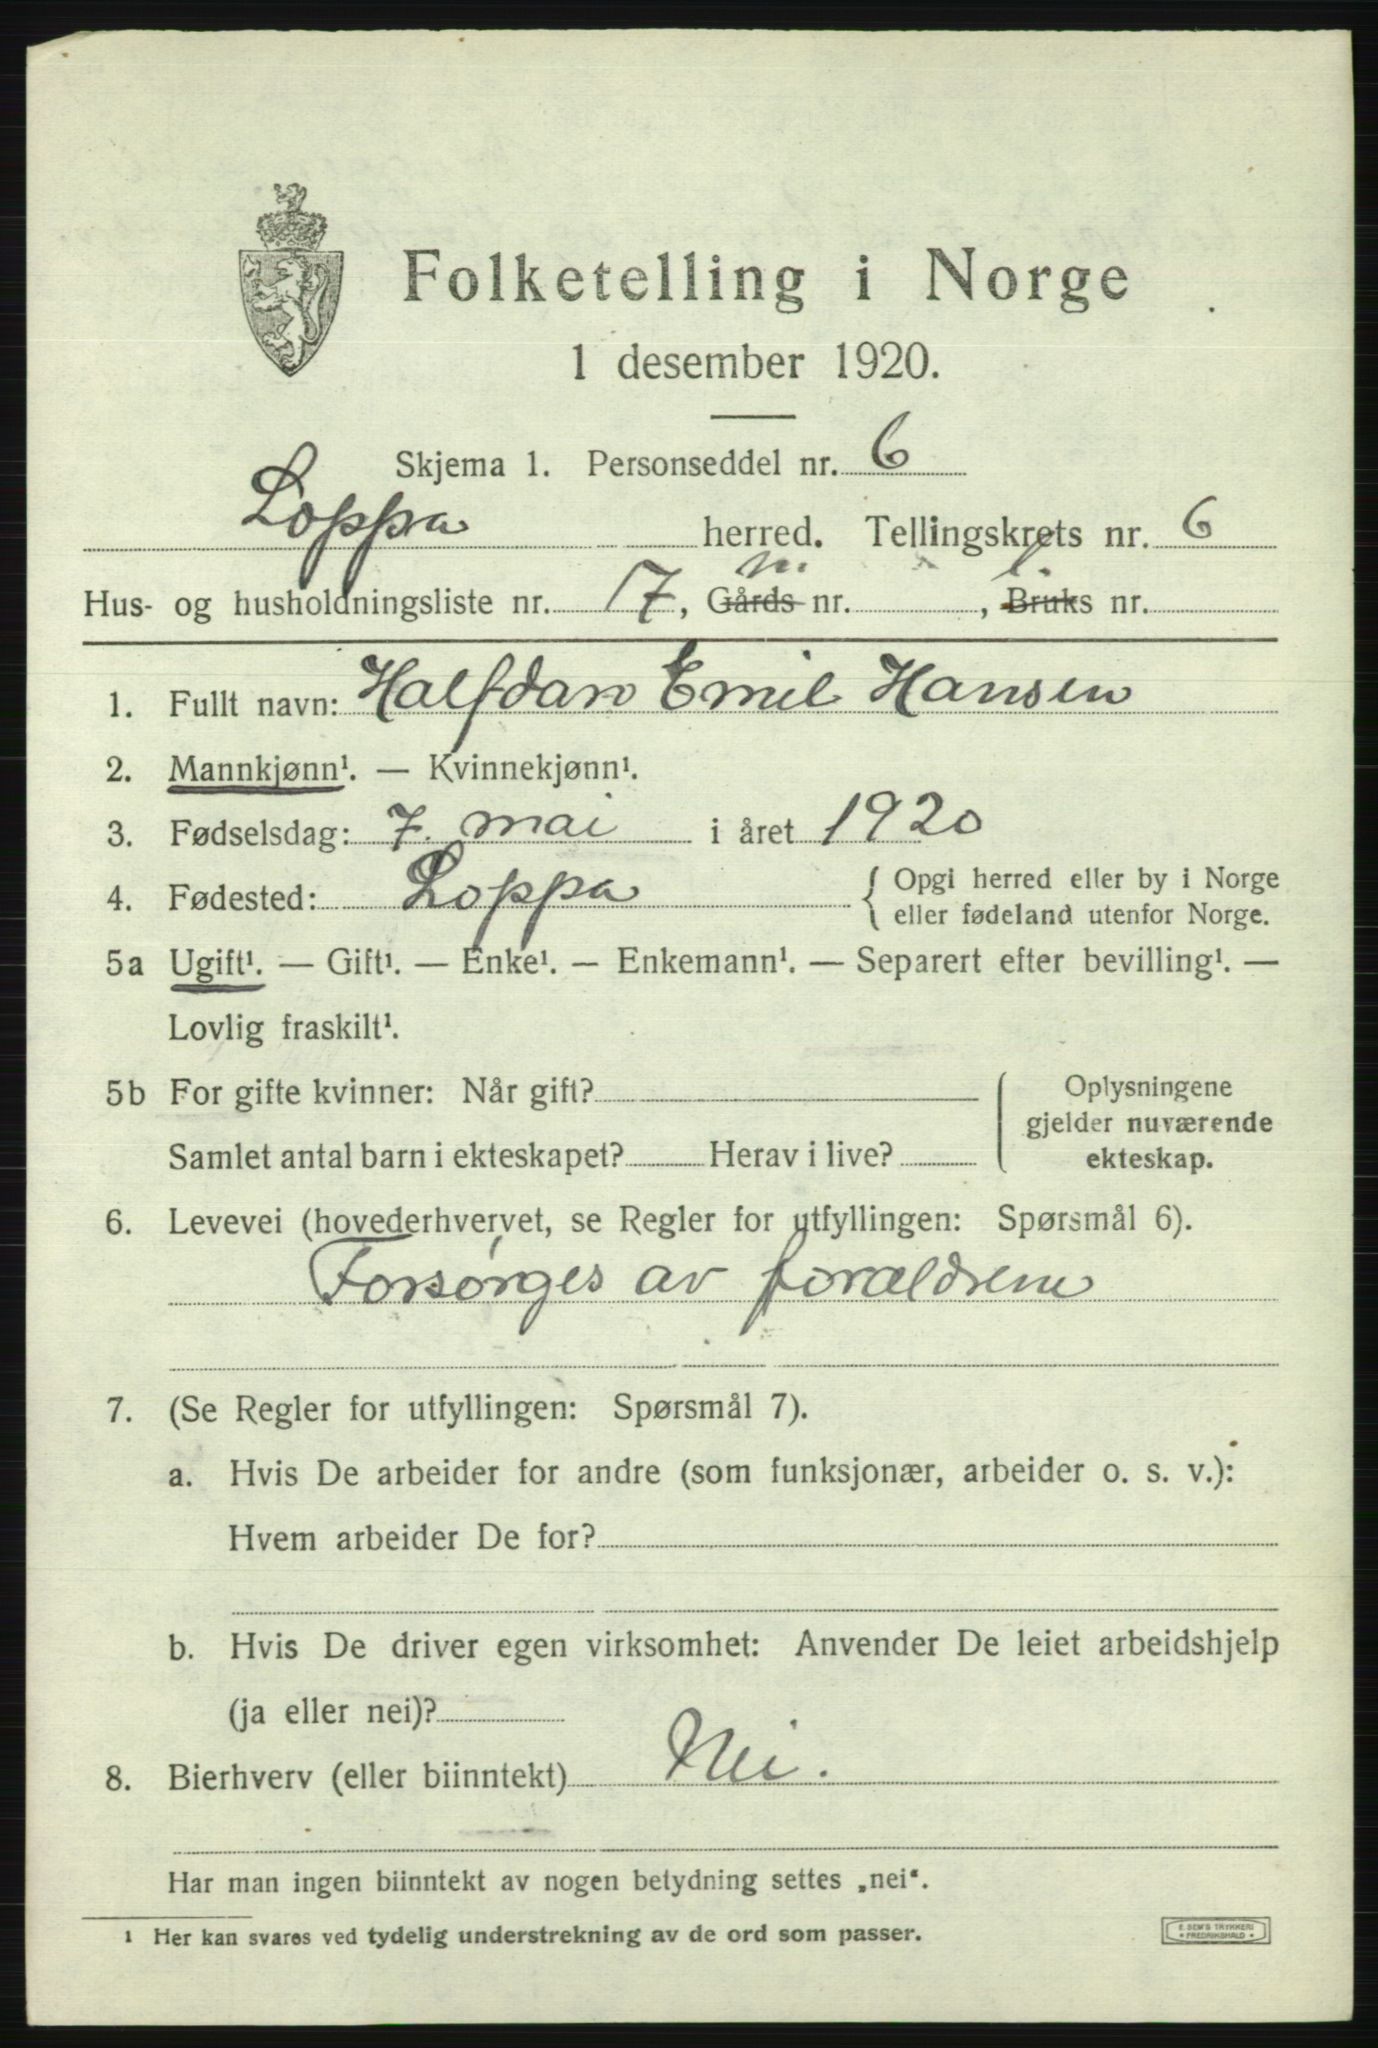 Folketelling i Norge
1 desember 1920.
Skjema 1. Personseddel nr. 6
Loppa herred. Tellingskrets nr. 6
m. l.
Hus- og husholdningsliste nr. 17, Gårds nr. , Bruks nr.
1. Fullt navn: Halfdan Emil Hansen
2. Mannkjønn¹. — Kvinnekjønn¹.
3. Fødselsdag: 7. mai i året 1920
4. Fødested: Loppa { Opgi herred eller by i Norge
eller fødeland utenfor Norge.
5a Ugift¹. — Gift¹. — Enke¹. — Enkemann¹. — Separert efter bevilling¹. —
Lovlig fraskilt¹.
5b For gifte kvinner: Når gift? Oplysningene
gjelder nuværende
Samlet antal barn i ekteskapet? Herav i live? ekteskap.
6. Levevei (hovederhvervet, se Regler for utfyllingen: Spørsmål 6).
Forsørges av forældrene
7. (Se Regler for utfyllingen: Spørsmål 7).
a. Hvis De arbeider for andre (som funksjonær, arbeider o. s. v.):
Hvem arbeider De for?
b. Hvis De driver egen virksomhet: Anvender De leiet arbeidshjelp
(ja eller nei)?
8. Bierhverv (eller biinntekt) Nei.
Har man ingen biinntekt av nogen betydning settes „nei“.
¹ Her kan svares ved tydelig understrekning av de ord som passer.
E. SEM'S TRYKKERI
• FREDRIKSHALD •